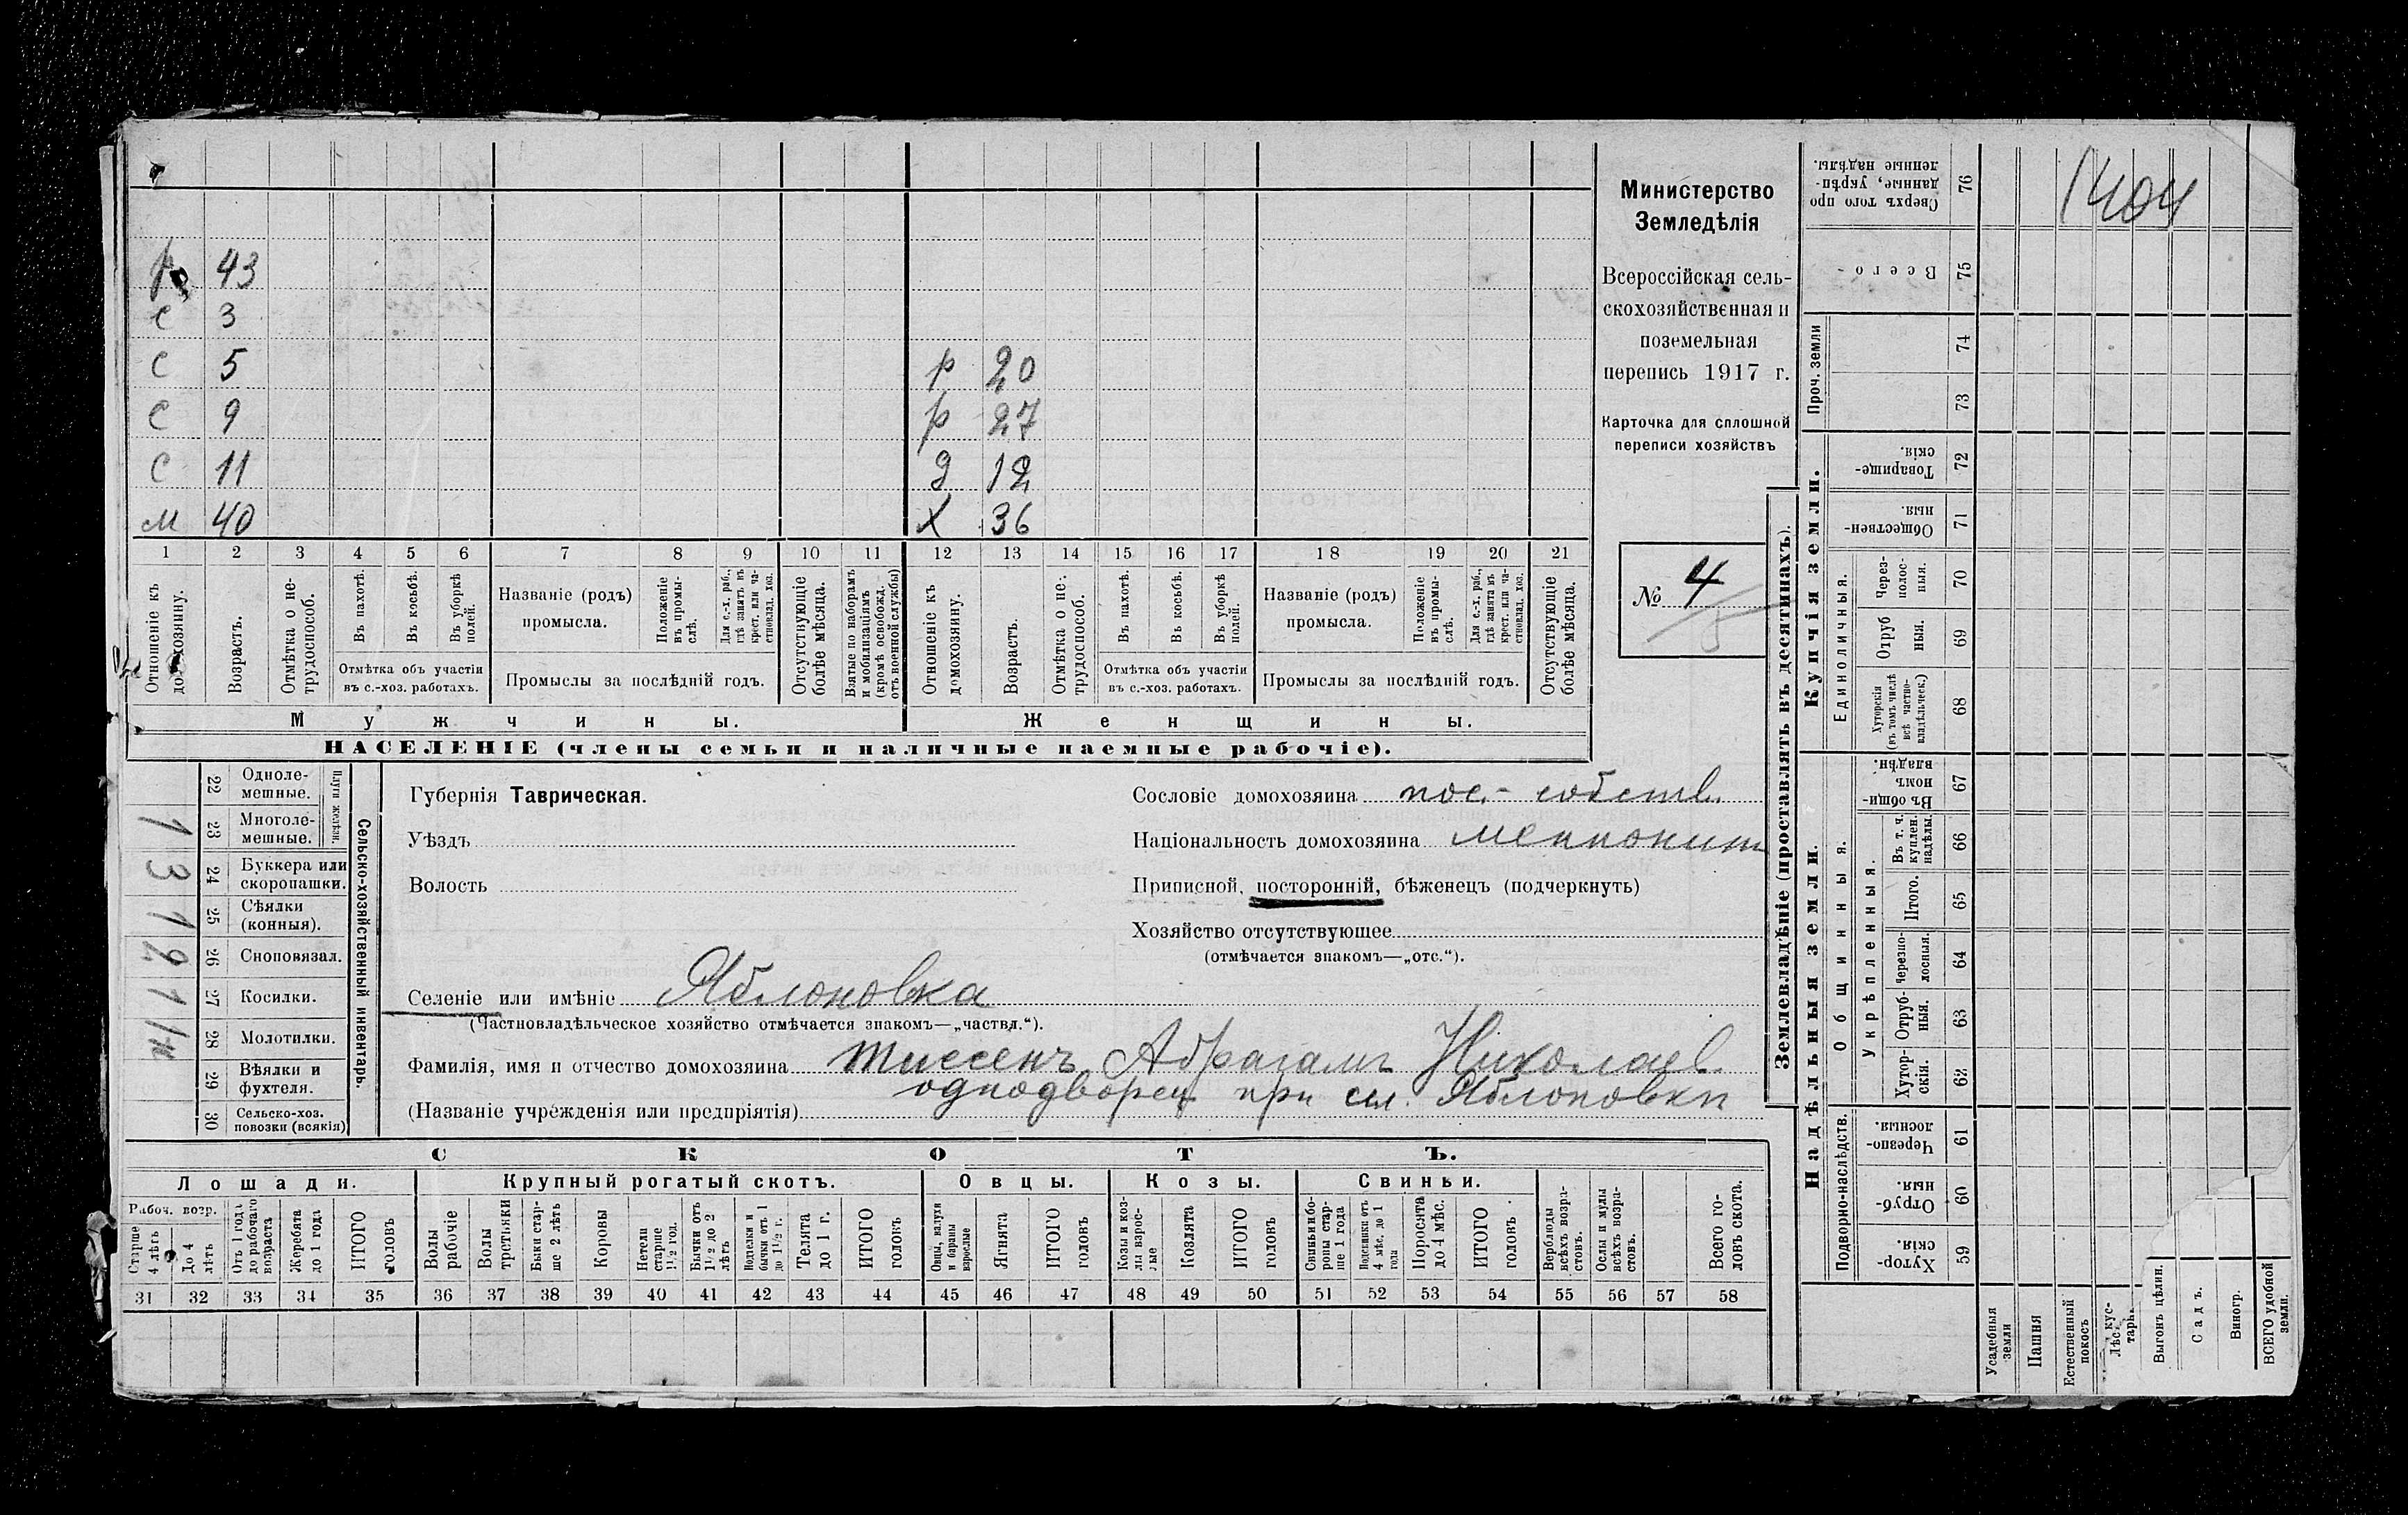 1404
Министерство
Земледѣлія
Всероссійская сель-
скохозяйственная и
поземельная
перепись 1917 г.
Карточка для сплошной
переписи хозяйствъ
№ 4
р 43
с 3
с 5 р 20
с 9 р 27
с 11 д 12
м 40 х 36
1 2 3 4 5 6 7 8 9 10 11 12 13 14 15 16 17 18 19 20 21
Отношеніе къ домохозяину.
Возрастъ.
Отмѣтка о не-
трудоспособ.
Въ пахотѣ.
Въ косьбѣ.
Въ уборкѣ
полей.
Отмѣтка объ участіи
въ с.-хоз. работахъ.
Названіе (родъ)
промысла.
Положеніе
въ промы-
слѣ.
Для с.-х. раб.,
гдѣ занятъ въ
крест. или ча-
стновлад. хоз.
Промыслы за послѣдній годъ.
Отсутствующіе
болѣе мѣсяца.
Взятые по наборамъ
и мобилизаціямъ
(кромѣ освобожд.
отъ военной службы)
Отношеніе къ
домохозяину.
Возрастъ.
Отмѣтка о не-
трудоспособ.
Въ пахотѣ.
Въ косьбѣ.
Въ уборкѣ
полей.
Отмѣтка объ участіи
въ с.-хоз. работахъ.
Названіе (родъ)
промысла.
Положеніе
въ промы-
слѣ.
Для с.-х. раб.,
гдѣ занята въ
крест. или ча-
стновлад. хоз.
Промыслы за послѣдній годъ.
Отсутствующіе
болѣе мѣсяца.
Мужчины. Женщины.
НАСЕЛЕНІЕ (члены семьи и наличные наемные рабочіе).
Сельско-хозяйственный инвентарь.
Плуги желѣзн.
22 Одноле-
мешные.
23 Многоле-
мешные. 1
24 Буккера или
скоропашки. 3
25 Сѣялки
(конныя). 1
26 Сноповязал. 2
27 Косилки. 1
28 Молотилки. 1к
29 Вѣялки и
фухтеля.
30 Сельско-хоз.
повозки (всякія)
Губернія Таврическая.
Уѣздъ
Волость
Сословіе домохозяина пос.- собств.
Національность домохозяина меннонит
Приписной, посторонній, бѣженецъ (подчеркнуть)
Хозяйство отсутствующее
(отмѣчается знакомъ—„отс.“).
Селеніе или имѣніе Яблоновка
(Частновладѣльческое хозяйство отмѣчается знакомъ—„частвл.“).
Фамилія, имя и отчество домохозяина Тиссенъ Абрагамъ Николаев.
однодворец при сел. Яблоновки
(Названіе учрежденія или предпріятія)
СКОТЪ.
Лошади. Крупный рогатый скотъ. Овцы. Козы. Свиньи.
Рабоч. возр.
Старше
4 лѣтъ
До 4
лѣтъ
Отъ 1 года
до рабочаго
возраста
Жеребята
до 1 года
ИТОГО
головъ
Волы
рабочіе
Волы
третьяки
Быки стар-
ше 2 лѣтъ
Коровы
Нетели
старше
1½ год.
Бычки отъ
1½ до 2
лѣтъ
бычки отъ 1
до 1½ г.
Телята
до 1 г.
ИТОГО
головъ
Овцы, валухи
и бараны
взрослые
Ягнята
ИТОГО
головъ
Козы и коз-
лы взрос-
лые
Козлята
ИТОГО
головъ
Свиньи и бо-
ровы стар-
ше 1 года
Подсвинки отъ
4 мѣс. до 1
года
Поросята
до 4 мѣс.
ИТОГО
головъ
Верблюды
всѣхъ возра-
стовъ.
Ослы и мулы
всѣхъ возра-
стовъ.
Всего го-
ловъ скота.
31 32 33 34 35 36 37 38 39 40 41 42 43 44 45 46 47 48 49 50 51 52 53 54 55 56 57 58
Землевладѣніе (проставлять въ десятинахъ).
Надѣльныя земли. Купчія земли.
Подворно-наслѣдств.
Общинныя.
Укрѣпленныя.
Единоличныя.
Проч. земли
Сверхъ того про
данные, укрѣп-
ленные надѣлы. 76
Всего - 75
74
73
Товарище-
скія. 72
Обществен-
ныя. 71
Через-
полос-
ныя. 70
Отруб
ныя. 69
Хуторскія
(въ томъ числѣ
всѣ частно-
владѣльческ.) 68
Въ общи-
номъ
владѣн. 67
Въ т. ч.
куплен.
надѣлы. 66
Итого. 65
Черезпо-
лосныя. 64
Отруб-
ныя. 63
Хутор-
скія. 62
Черезпо-
лосныя. 61
Отруб-
ныя. 60
Хутор-
скія. 59
Усадебныя
земли
Пашня
Естественный
покосъ
Выгонъ цѣлин.
Садъ.
Виногр.
ВСЕГО удобной
земли.